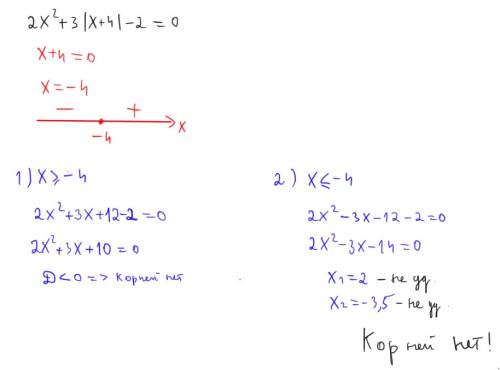 2x²+3|x+4|-2=0
x+4=0
x=-4
- +
-4 x
1) x⩾-4
2x²+3x+12-2=0
2x²+3x+10=0
D<0 => корней нет
2) x⩽-4
2x²-3x-12-2=0
2x²-3x-14=0
x₁=2 - не уд.
x₂=-3,5 - не уд.
Корней нет!